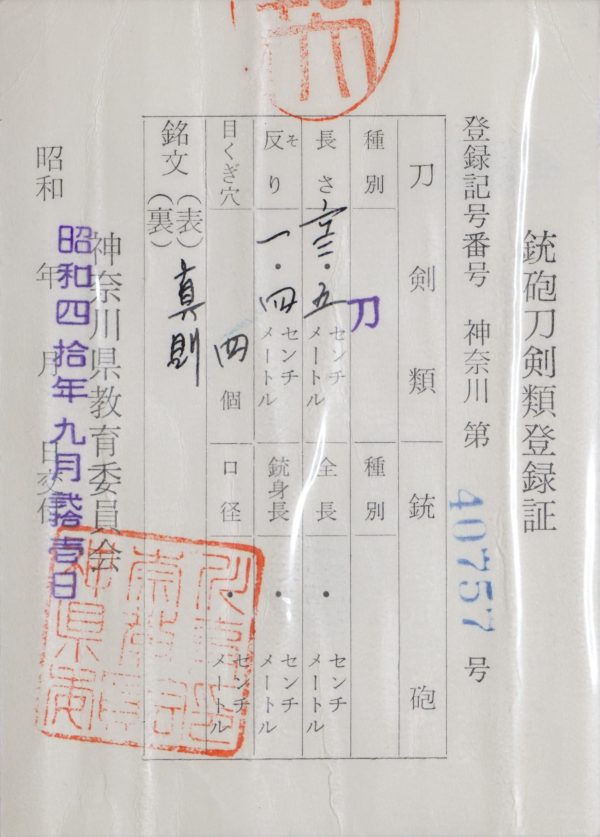 銃砲刀剣類登録証
登録記号番号 神奈川 第 40757 号
刀剣類 銃砲
種別 刀 種別
長さ 六三・五 センチメートル 全長 ・ センチメートル
反り そ 一・四 センチメートル 銃身長 ・ センチメートル
目くぎ穴 四 個 口径 ・ センチメートル
銘文 (表) 真則
(裏)
神奈川県教育委員会
昭和 年 月 日交付
昭和四拾年九月弐拾壱日